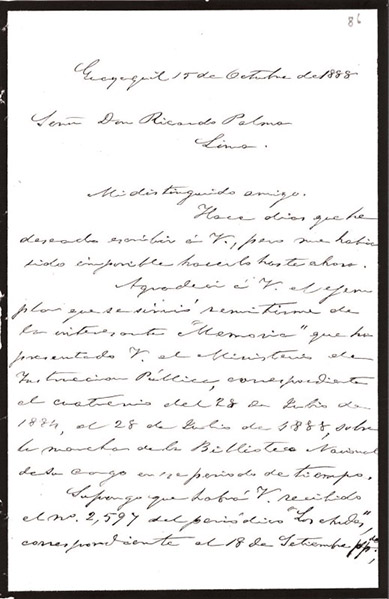 86
Guayaquil 15 de Octubre de 1888
Señor Don Ricardo Palma
Lima.
Mi distinguido amigo.
Hace dias que he
deseado escribir á V., pero me habia
sido imposible hacerlo hasta ahora.
Agradecí á V. el ejem
plar que se sirvió remitirme de
la interesante "Memoria" que ha
presentado V. al Ministerio de
Instruccion Pública, correspondiente
al cuatrenio del 28 de Julio de
1884, al 28 de Julio de 1888, sobre
la marcha de la Biblioteca Nacional
de su cargo en ese periodo de tiempo.
Supongo que habrá V. recibido
el nº. 2,597 del periódico "Los
correspondiente al 18 de Setiembre ppdo,